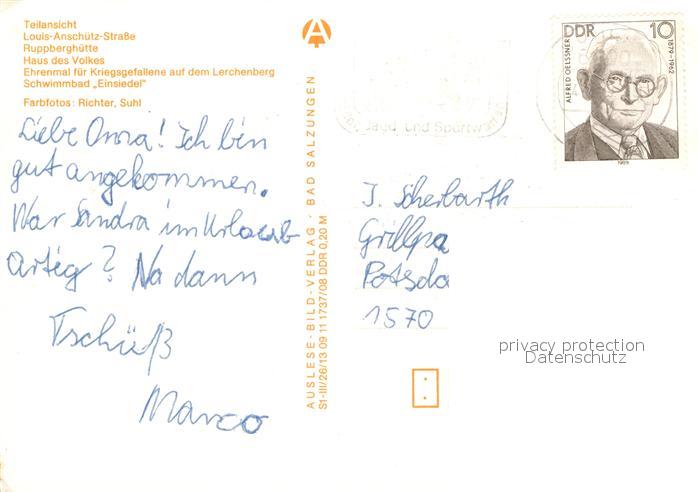 Teilansicht
Louis-Anschütz-Straße
Ruppberghütte
Haus des Volkes
Ehrenmal für Kriegsgefallene auf dem Lerchenberg
Schwimmbad „Einsiedel"
Farbfotos: Richter, Suhl
Liebe Oma! Ich bin
gut angekommen.
War Sandra im Urlaub
artig? Na dann
Tschüß
Marco
AUSLESE-BILD-VERLAG · BAD SALZUNGEN
S1-III/26/13 09 11 1737/08 DDR 0,20 M
Jagd- und Sportwaffen
DDR 10
ALFRED OELSSNER
1879-1962
1989
J. Scherbarth
Grillpa
Potsda
1570
privacy protection
Datenschutz